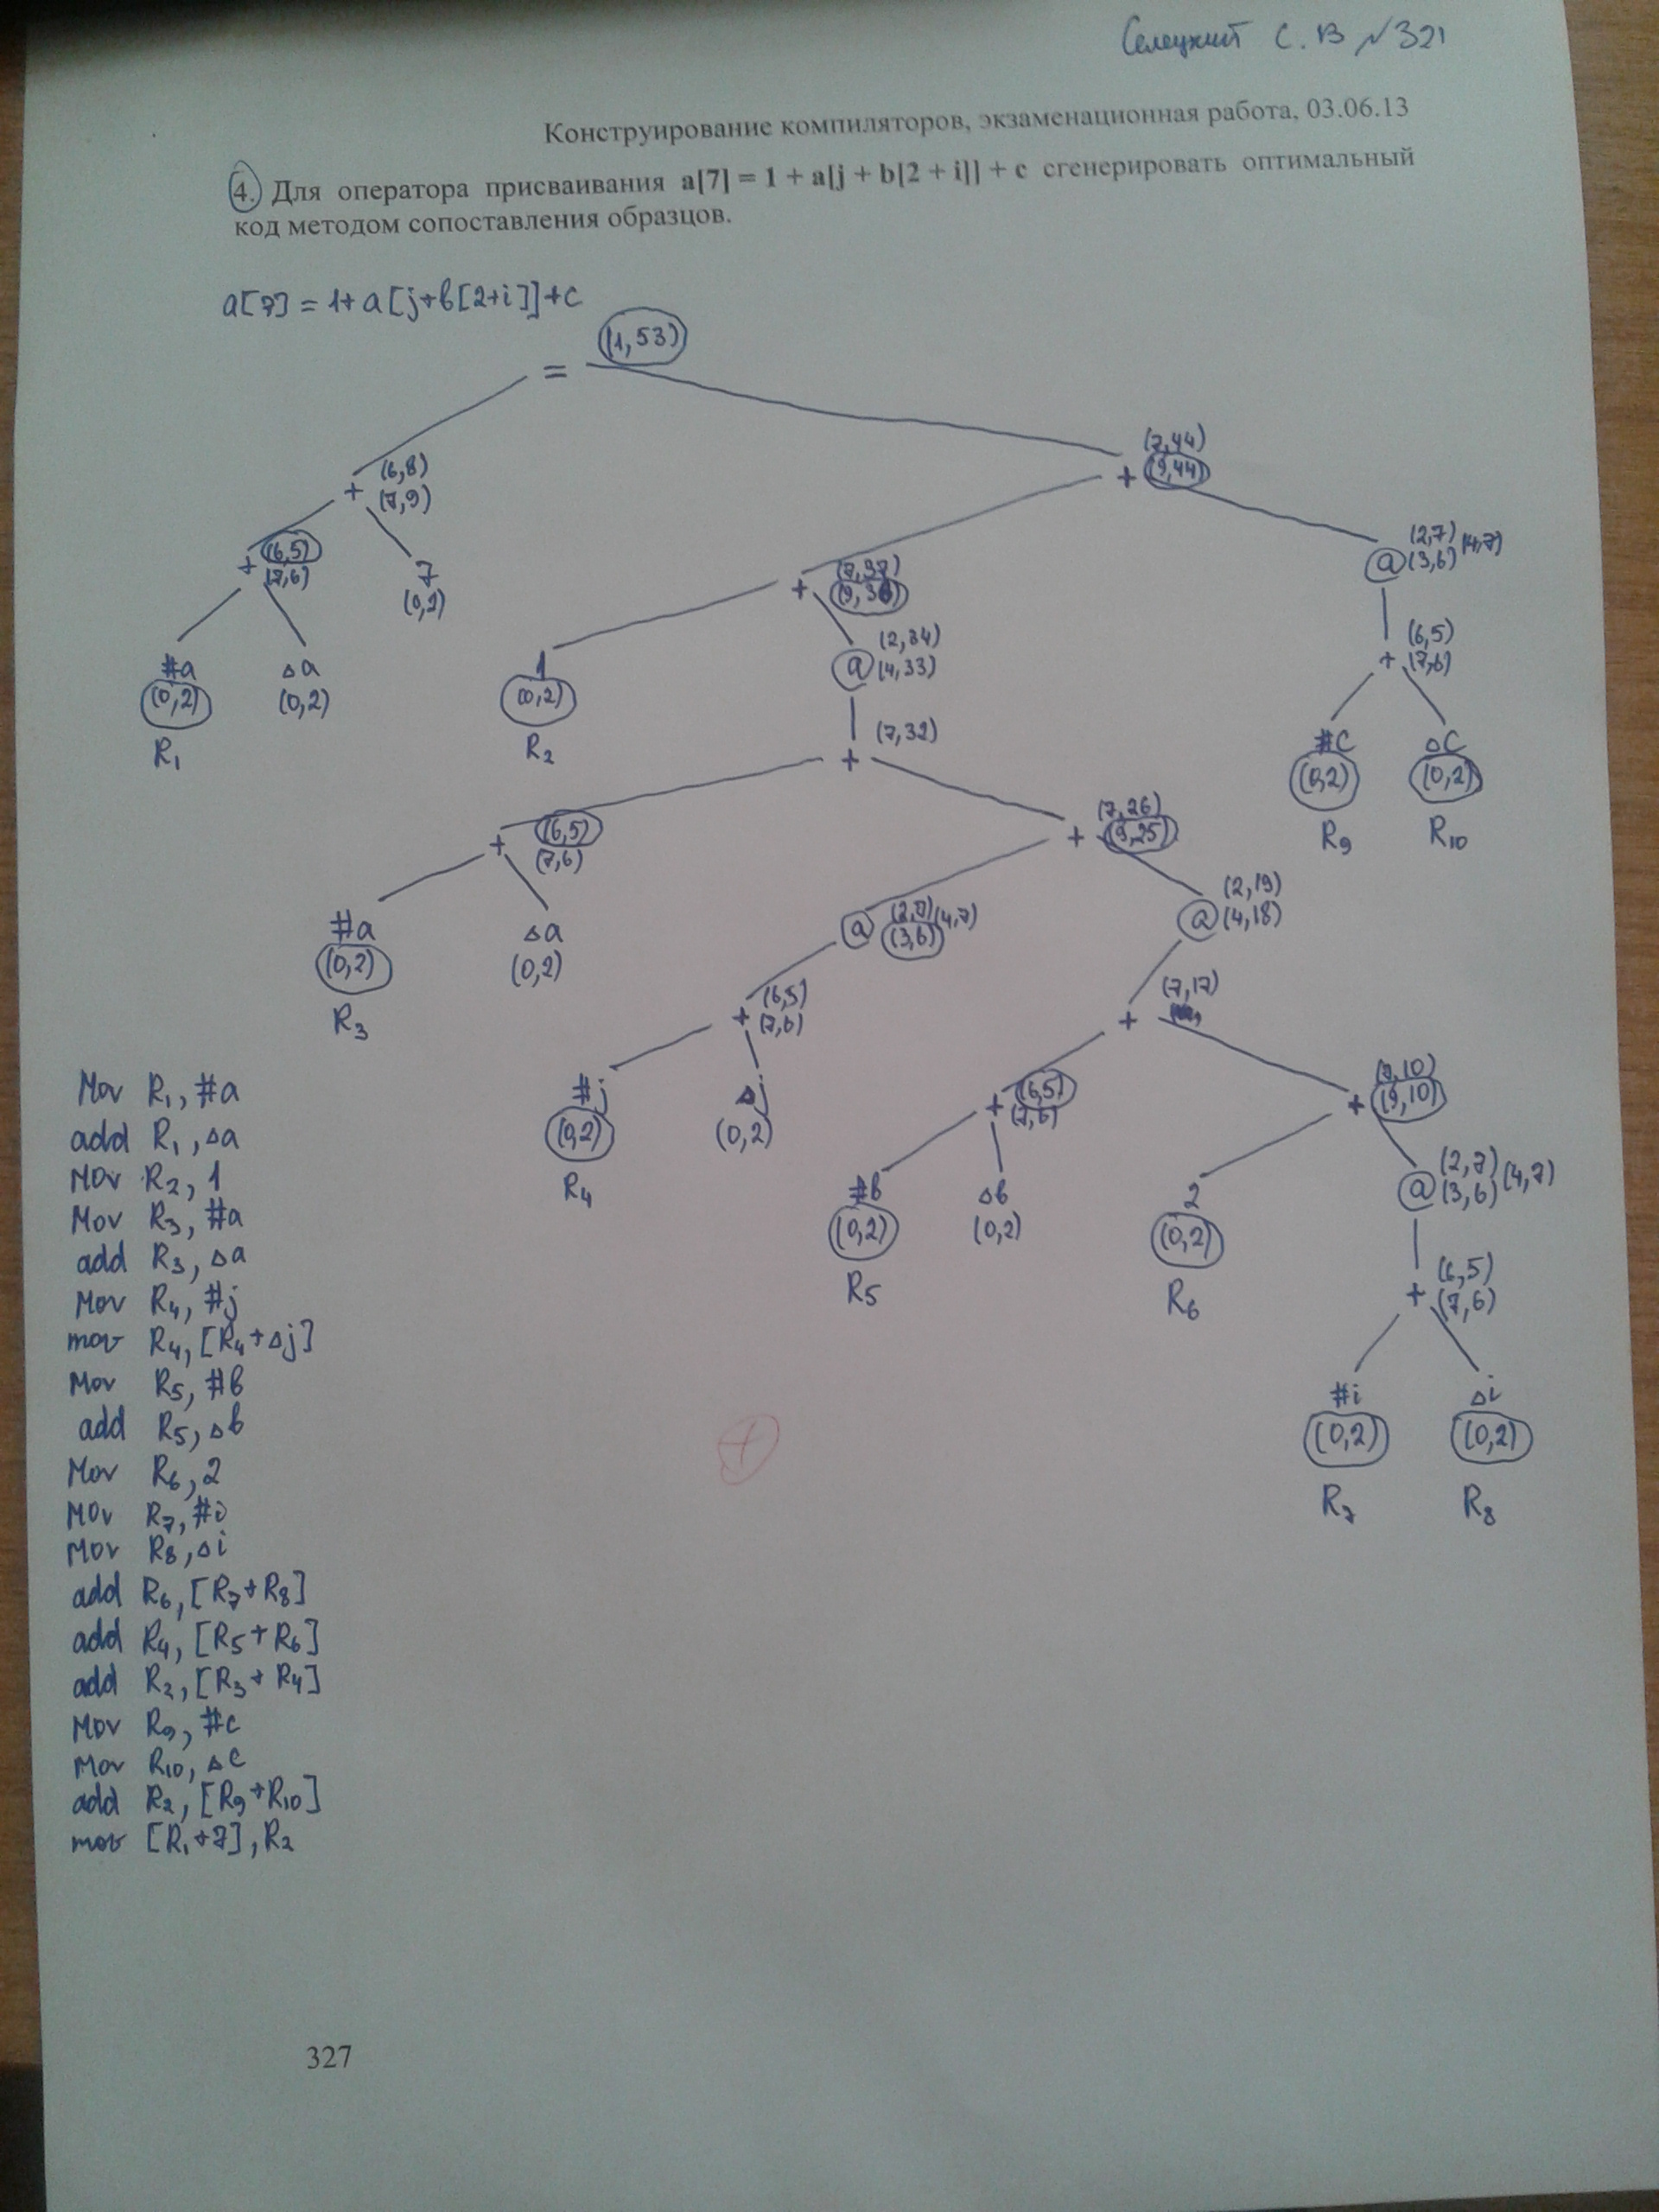 Селецкий С. В №321
Конструирование компиляторов, экзаменационная работа, 03.06.13
4. Для оператора присваивания a[7] = 1 + a[j + b[2 + i]] + c сгенерировать оптимальный
код методом сопоставления образцов.
a[7] = 1+a[j+b[2+i]]+c
= (1,53)
+ (6,8) (7,9)
+ (7,44) (9,44)
+ (6,5) (7,6)
7 (0,2)
+ (7,37)
@ (2,7) (3,6) (4,7)
#a (0,2) R1
Δa (0,2)
1 (0,2) R2
@ (2,34) (4,33)
+ (6,5) (7,6)
+ (7,32)
#c (0,2) R9
Δc (0,2) R10
+ (6,5) (7,6)
+ (7,26) (9,25)
#a (0,2) R3
Δa (0,2)
@ (3,6) (4,7)
@ (2,19) (4,18)
+ (6,5) (7,6)
+ (7,17)
#j (0,2) R4
Δj (0,2)
+ (6,5) (7,6)
+ (7,10) (9,10)
#b (0,2) R5
Δb (0,2)
2 (0,2) R6
@ (2,7) (3,6) (4,7)
+ (6,5) (7,6)
#i (0,2) R7
Δi (0,2) R8
Mov R1, #a
add R1, Δa
Mov R2, 1
Mov R3, #a
add R3, Δa
Mov R4, #j
mov R4, [R4+Δj]
Mov R5, #b
add R5, Δb
Mov R6, 2
Mov R7, #i
Mov R8, Δi
add R6, [R7+R8]
add R4, [R5+R6]
add R2, [R3+R4]
Mov R9, #c
Mov R10, Δc
add R2, [R9+R10]
mov [R1+7], R2
+
327